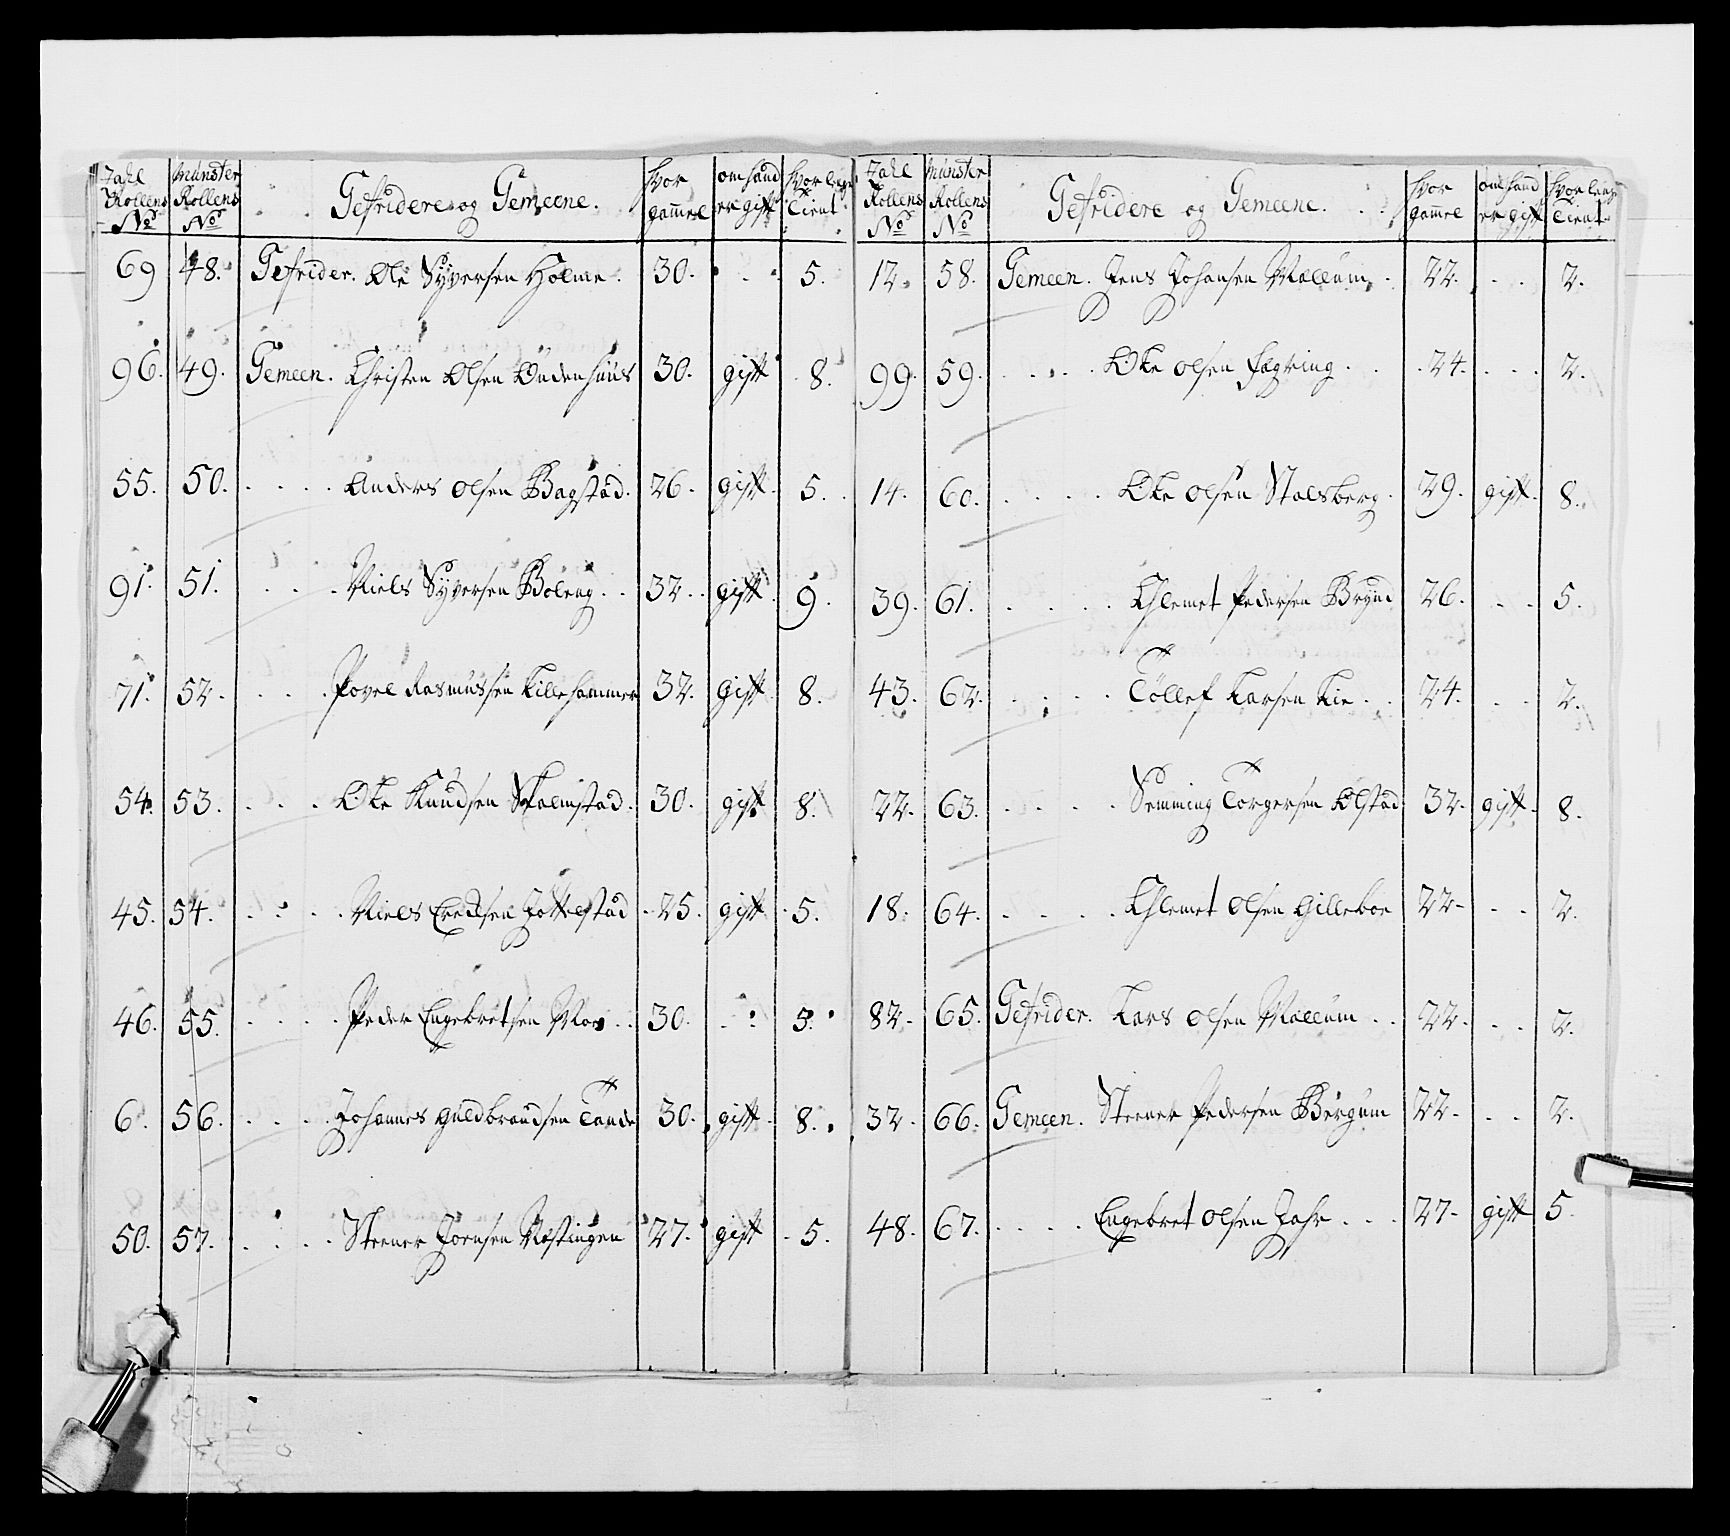 Zahl Rollens No | Münster Rollens No | Gefridere og Gemeene. | hvor gammel | om hand er gift | hvor lenge tient
69 | 48. | Gefrider. Ole Syversen Holme. | 30. | . . . | 5.
96. | 49. | Gemeen. Christen Olsen Ondenhuus | 30. | gift | 8.
55. | 50. | . . . . Anders Olsen Bagstad. | 26. | gift. | 5.
91. | 51. | . . . . Niels Syversen Boleng. . | 32. | gift | 9.
71. | 52. | . . . . Povel Rasmussen Lillehammer | 32. | gift | 8.
54. | 53. | . . . Ole Knudsen Skalmstad. | 30. | gift | 8.
45. | 54. | . . . . Niels Jottestad | 25. | gift | 5.
46. | 55. | . . . . Peder Engebretsen Moe . . | 30. | . . | 5.
6. | 56. | . . . . Johannes Guldbrandsen Tande | 30. | gift | 8.
50. | 57. | . . . . Steener Joensen | 27. | gift | 5.
Zahl Rollens No | Münster Rollens No | Gefridere og Gemeene. . . | hvor gammel | om hand er gift | hvor lenge tient
12. | 58. | Gemeen. Jens Johansen Mællum. | 22. | . . | 2.
99. | 59. | . . . . Ole Olsen Fægring . . | 24. | . . . | 2.
14. | 60. | . . . . Ole Olsen Stalsberg. | 29. | gift. | 8.
39. | 61. | . . . . Chlemet Pedersen Brynd | 26. | . . | 5.
43. | 62. | . . . . Tollef Larsen Lie . . | 24. | . . | 2.
22. | 63. | . . . . Semming Torgersen Olstad | 32. | gift. | 8.
18. | 64. | . . . . Chlemet Olsen Gilleboe | 22. | . . | 2.
82. | 65. | Gefrider. Lars Olsen Mællum . . | 22. | . . | 2.
32. | 66. | Gemeen. Steener Pedersen Bergum | 22. | . . | 2.
48. | 67. | . . . . Engebret Olsen Jahr . . . | 27. | gift | 5.